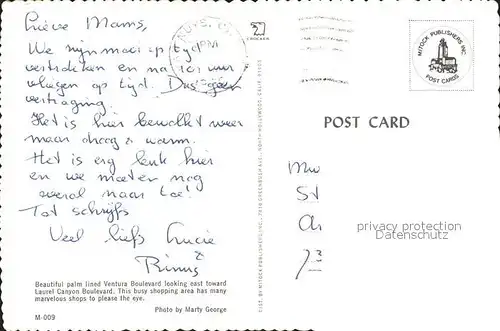 Lieve Mams,
We zijn mooi op tijd
vertrokken en na tien uur
vliegen op tijd. Dus geen
vertraging.
Het is hier bewolkt weer
maar droog & warm.
Het is erg leuk hier
en we moeten nog
overal naar toe!
Tot schrijfs
Veel liefs Lucie
&
Rinus
Beautiful palm lined Ventura Boulevard looking east toward
Laurel Canyon Boulevard. This busy shopping area has many
marvelous shops to please the eye.
Photo by Marty George
M-009
PM
MITOCK PUBLISHERS INC.
POST CARDS
POST CARD
privacy protection
Datenschutz